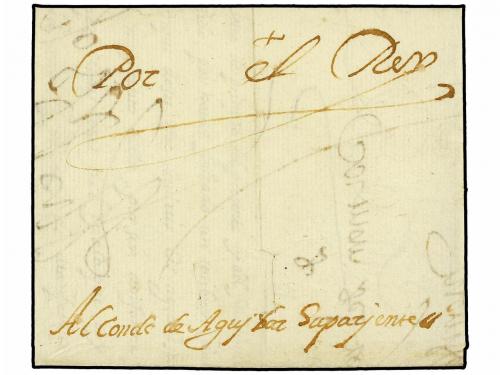 Por el Rey
Al Conde de Aguilar Su pariente